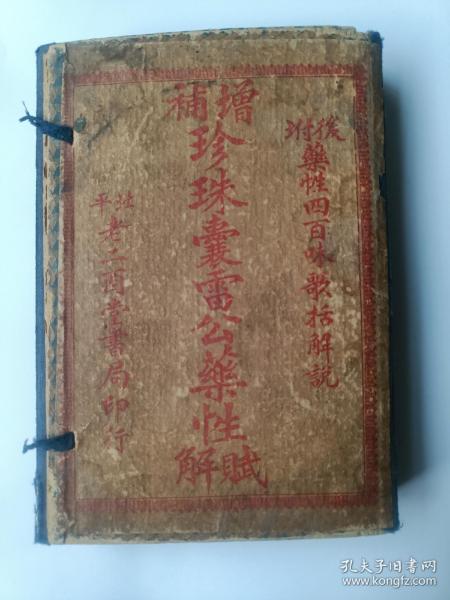 後附藥性四百味歌括解説
增補珍珠囊雷公藥性賦解
北平老二酉堂書局印行
孔夫子旧书网
www.kongfz.com